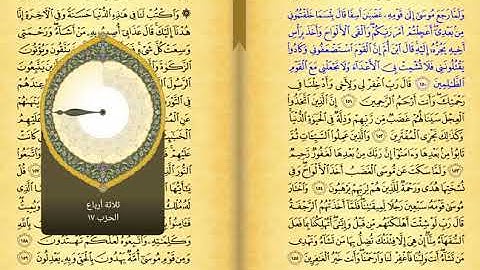 وَلَمَّا رَجَعَ مُوسَىٰ إِلَىٰ قَوْمِهِ غَضْبَٰنَ أَسِفًا قَالَ بِئْسَمَا خَلَفْتُمُونِى
مِنۢ بَعْدِىٓ أَعَجِلْتُمْ أَمْرَ رَبِّكُمْ وَأَلْقَى ٱلْأَلْوَاحَ وَأَخَذَ بِرَأْسِ
أَخِيهِ يَجُرُّهُۥٓ إِلَيْهِ قَالَ ٱبْنَ أُمَّ إِنَّ ٱلْقَوْمَ ٱسْتَضْعَفُونِى وَكَادُوا۟
يَقْتُلُونَنِى فَلَا تُشْمِتْ بِىَ ٱلْأَعْدَآءَ وَلَا تَجْعَلْنِى مَعَ ٱلْقَوْمِ
ٱلظَّٰلِمِينَ ١٥٠ قَالَ رَبِّ ٱغْفِرْ لِى وَلِأَخِى وَأَدْخِلْنَا فِى
رَحْمَتِكَ وَأَنتَ أَرْحَمُ ٱلرَّٰحِمِينَ ١٥١ إِنَّ ٱلَّذِينَ ٱتَّخَذُوا۟
ٱلْعِجْلَ سَيَنَالُهُمْ غَضَبٌ مِّن رَّبِّهِمْ وَذِلَّةٌ فِى ٱلْحَيَوٰةِ ٱلدُّنْيَا
وَكَذَٰلِكَ نَجْزِى ٱلْمُفْتَرِينَ ١٥٢ وَٱلَّذِينَ عَمِلُوا۟ ٱلسَّيِّـَٔاتِ ثُمَّ
تَابُوا۟ مِنۢ بَعْدِهَا وَءَامَنُوٓا۟ إِنَّ رَبَّكَ مِنۢ بَعْدِهَا لَغَفُورٌ رَّحِيمٌ
١٥٣ وَلَمَّا سَكَتَ عَن مُّوسَى ٱلْغَضَبُ أَخَذَ ٱلْأَلْوَاحَ وَفِى
نُسْخَتِهَا هُدًى وَرَحْمَةٌ لِّلَّذِينَ هُمْ لِرَبِّهِمْ يَرْهَبُونَ ١٥٤ وَٱخْتَارَ
مُوسَىٰ قَوْمَهُۥ سَبْعِينَ رَجُلًا لِّمِيقَٰتِنَا فَلَمَّآ أَخَذَتْهُمُ ٱلرَّجْفَةُ
قَالَ رَبِّ لَوْ شِئْتَ أَهْلَكْتَهُم مِّن قَبْلُ وَإِيَّٰىَ أَتُهْلِكُنَا بِمَا فَعَلَ
ٱلسُّفَهَآءُ مِنَّآ إِنْ هِىَ إِلَّا فِتْنَتُكَ تُضِلُّ بِهَا مَن تَشَآءُ وَتَهْدِى
مَن تَشَآءُ أَنتَ وَلِيُّنَا فَٱغْفِرْ لَنَا وَٱرْحَمْنَا وَأَنتَ خَيْرُ ٱلْغَٰفِرِينَ ١٥٥
۞ وَٱكْتُبْ لَنَا فِى هَٰذِهِ ٱلدُّنْيَا حَسَنَةً وَفِى ٱلْءَاخِرَةِ إِنَّا
هُدْنَآ إِلَيْكَ قَالَ عَذَابِىٓ أُصِيبُ بِهِۦ مَنْ أَشَآءُ وَرَحْمَتِى
وَسِعَتْ كُلَّ شَىْءٍ
يَتَّقُونَ وَيُؤْتُونَ
يَتَّبِعُونَ
ٱلرَّسُولَ
عِندَهُمْ
عَلَيْهِمُ
وَٱتَّبَعُوا۟
وَكَلِمَٰتِهِۦ وَٱتَّبِعُوهُ لَعَلَّكُمْ تَهْتَدُونَ ١٥٨
وَمِن قَوْمِ مُوسَىٰٓ أُمَّةٌ يَهْدُونَ بِٱلْحَقِّ وَبِهِۦ يَعْدِلُونَ ١٥٩
ثلاثة أرباع
الحزب ١٧